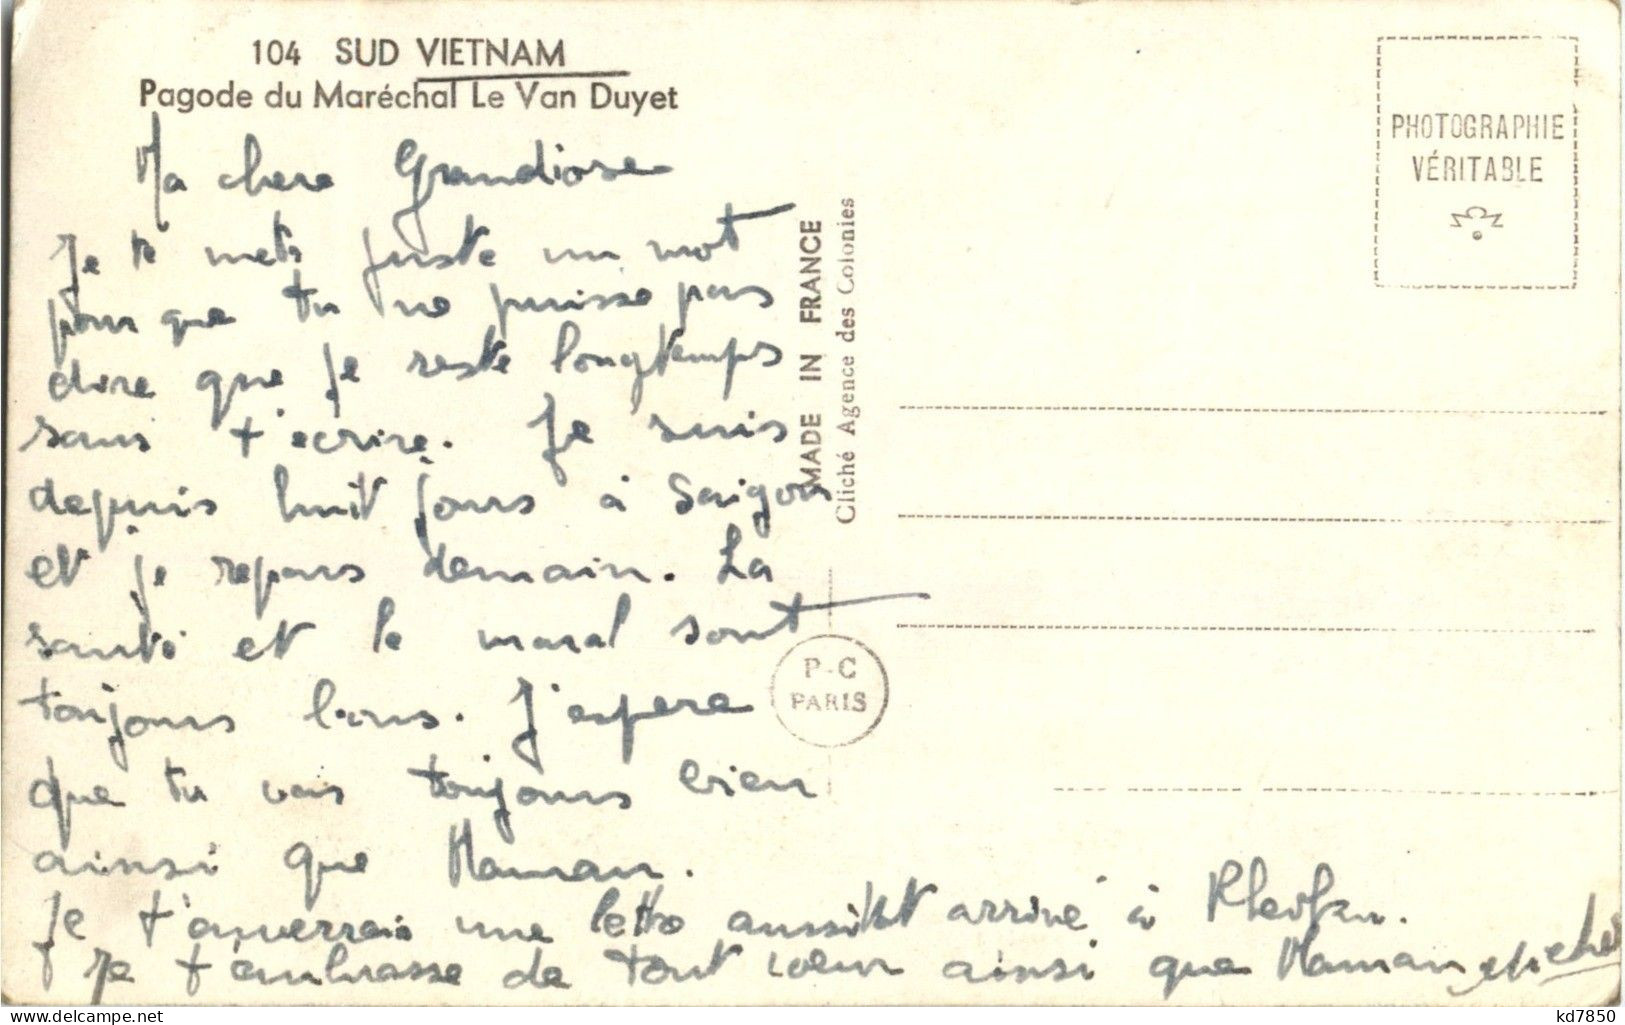 104 SUD VIETNAM
Pagode du Maréchal Le Van Duyet
PHOTOGRAPHIE
VÉRITABLE
Ma chere Grandiose
Je te mets juste un mot
pour que tu ne puisse pas
dire que je reste longtemps
sans t'ecrire. Je suis
depuis huit jours à Saigon
et je repars demain. La
santé et le moral sont
toujours bons. J'espere
que tu vais toujours bien
ainsi que Maman.
Je t'enverrais une lettre aussitôt arrivé à
Je t'embrasse de tout coeur ainsi que Maman
MADE IN FRANCE
Cliché Agence des Colonies
P-C
PARIS
kd7850